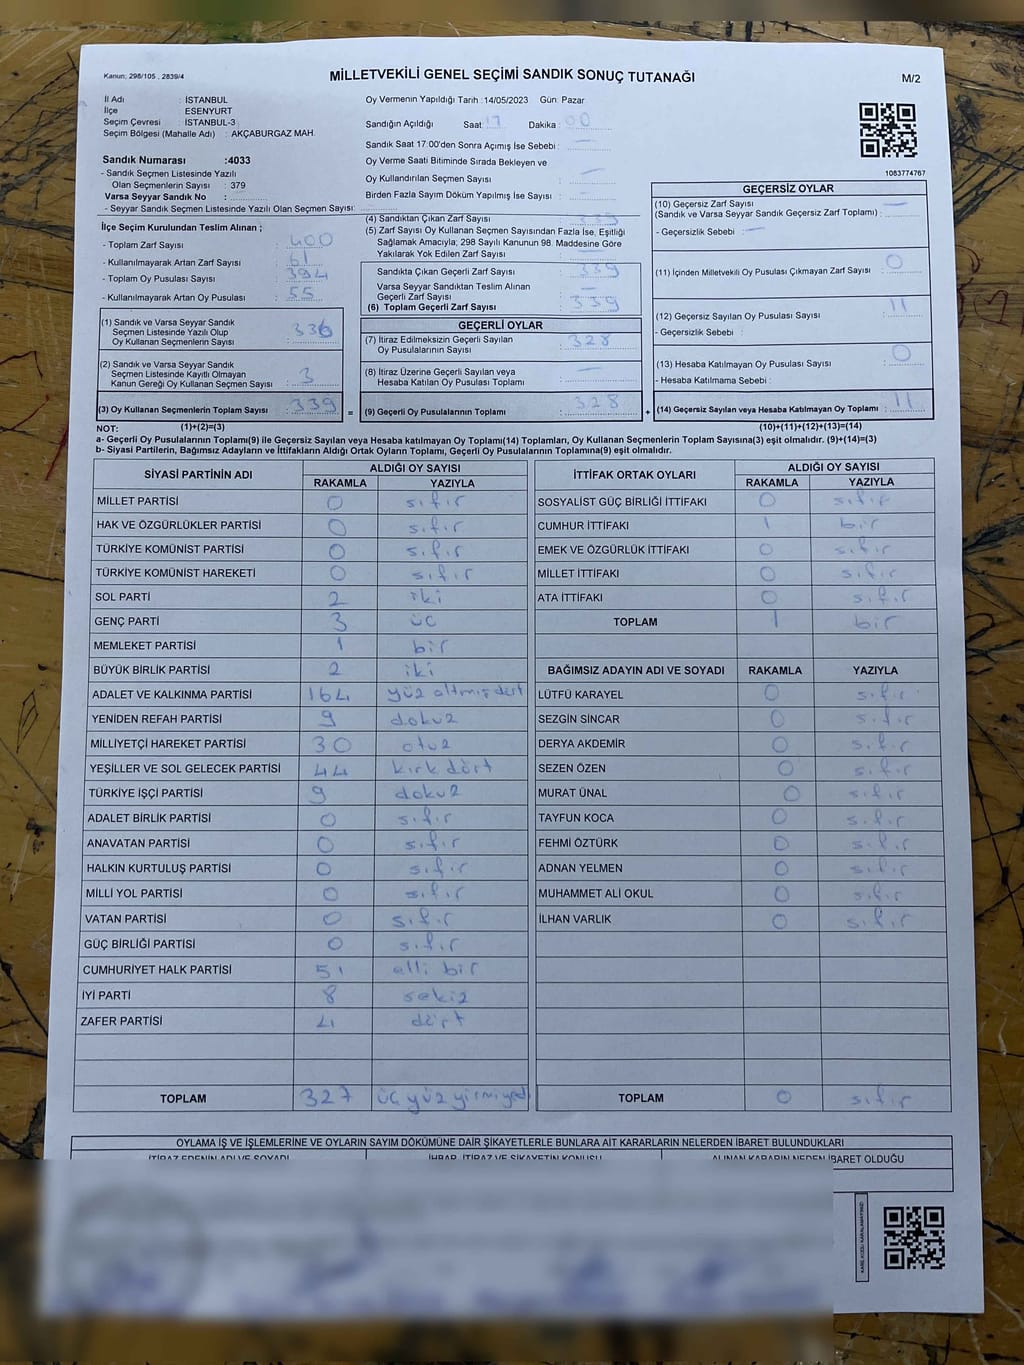 Kanun; 298/105 , 2839/4
MİLLETVEKİLİ GENEL SEÇİMİ SANDIK SONUÇ TUTANAĞI
M/2
İl Adı : İSTANBUL
İlçe : ESENYURT
Seçim Çevresi : İSTANBUL-3
Seçim Bölgesi (Mahalle Adı) : AKÇABURGAZ MAH.
Sandık Numarası :4033
- Sandık Seçmen Listesinde Yazılı
Olan Seçmenlerin Sayısı : 379
Varsa Seyyar Sandık No :
- Seyyar Sandık Seçmen Listesinde Yazılı Olan Seçmen Sayısı:
Oy Vermenin Yapıldığı Tarih :14/05/2023 Gün: Pazar
Sandığın Açıldığı Saat: 17 Dakika : 00
Sandık Saat 17:00'den Sonra Açımış İse Sebebi : —
Oy Verme Saati Bitiminde Sırada Bekleyen ve
Oy Kullandırılan Seçmen Sayısı : —
Birden Fazla Sayım Döküm Yapılmış İse Sayısı : —
1083774767
İlçe Seçim Kurulundan Teslim Alınan ;
- Toplam Zarf Sayısı : 400
- Kullanılmayarak Artan Zarf Sayısı : 61
- Toplam Oy Pusulası Sayısı : 394
- Kullanılmayarak Artan Oy Pusulası : 55
(1) Sandık ve Varsa Seyyar Sandık
Seçmen Listesinde Yazılı Olup
Oy Kullanan Seçmenlerin Sayısı : 336
(2) Sandık ve Varsa Seyyar Sandık
Seçmen Listesinde Kayıtlı Olmayan
Kanun Gereği Oy Kullanan Seçmen Sayısı : 3
(3) Oy Kullanan Seçmenlerin Toplam Sayısı : 339
(4) Sandıktan Çıkan Zarf Sayısı : 339
(5) Zarf Sayısı Oy Kullanan Seçmen Sayısından Fazla İse, Eşitliği
Sağlamak Amacıyla; 298 Sayılı Kanunun 98. Maddesine Göre
Yakılarak Yok Edilen Zarf Sayısı : —
Sandıkta Çıkan Geçerli Zarf Sayısı : 339
Varsa Seyyar Sandıktan Teslim Alınan
Geçerli Zarf Sayısı : —
(6) Toplam Geçerli Zarf Sayısı : 339
GEÇERLİ OYLAR
(7) İtiraz Edilmeksizin Geçerli Sayılan
Oy Pusulalarının Sayısı : 328
(8) İtiraz Üzerine Geçerli Sayılan veya
Hesaba Katılan Oy Pusulası Toplamı : —
= (9) Geçerli Oy Pusulalarının Toplamı : 328
GEÇERSİZ OYLAR
(10) Geçersiz Zarf Sayısı : —
(Sandık ve Varsa Seyyar Sandık Geçersiz Zarf Toplamı)
- Geçersizlik Sebebi : —
(11) İçinden Milletvekili Oy Pusulası Çıkmayan Zarf Sayısı : 0
(12) Geçersiz Sayılan Oy Pusulası Sayısı : 11
-Geçersizlik Sebebi :
(13) Hesaba Katılmayan Oy Pusulası Sayısı : 0
- Hesaba Katılmama Sebebi :
+ (14) Geçersiz Sayılan veya Hesaba Katılmayan Oy Toplamı : 11
NOT: (1)+(2)=(3) (10)+(11)+(12)+(13)=(14)
a- Geçerli Oy Pusulalarının Toplamı(9) ile Geçersiz Sayılan veya Hesaba katılmayan Oy Toplamı(14) Toplamları, Oy Kullanan Seçmenlerin Toplam Sayısına(3) eşit olmalıdır. (9)+(14)=(3)
b- Siyasi Partilerin, Bağımsız Adayların ve İttifakların Aldığı Ortak Oyların Toplamı, Geçerli Oy Pusulalarının Toplamına(9) eşit olmalıdır.
SİYASİ PARTİNİN ADI ALDIĞI OY SAYISI
RAKAMLA YAZIYLA
MİLLET PARTİSİ 0 sıfır
HAK VE ÖZGÜRLÜKLER PARTİSİ 0 sıfır
TÜRKİYE KOMÜNİST PARTİSİ 0 sıfır
TÜRKİYE KOMÜNİST HAREKETİ 0 sıfır
SOL PARTİ 2 iki
GENÇ PARTİ 3 üç
MEMLEKET PARTİSİ 1 bir
BÜYÜK BİRLİK PARTİSİ 2 iki
ADALET VE KALKINMA PARTİSİ 164 yüz altmış dört
YENİDEN REFAH PARTİSİ 9 dokuz
MİLLİYETÇİ HAREKET PARTİSİ 30 otuz
YEŞİLLER VE SOL GELECEK PARTİSİ 44 kırk dört
TÜRKİYE İŞÇİ PARTİSİ 9 dokuz
ADALET BİRLİK PARTİSİ 0 sıfır
ANAVATAN PARTİSİ 0 sıfır
HALKIN KURTULUŞ PARTİSİ 0 sıfır
MİLLİ YOL PARTİSİ 0 sıfır
VATAN PARTİSİ 0 sıfır
GÜÇ BİRLİĞİ PARTİSİ 0 sıfır
CUMHURİYET HALK PARTİSİ 51 elli bir
İYİ PARTİ 8 sekiz
ZAFER PARTİSİ 4 dört
TOPLAM 327 üç yüz yirmi yedi
İTTİFAK ORTAK OYLARI ALDIĞI OY SAYISI
RAKAMLA YAZIYLA
SOSYALİST GÜÇ BİRLİĞİ İTTİFAKI 0 sıfır
CUMHUR İTTİFAKI 1 bir
EMEK VE ÖZGÜRLÜK İTTİFAKI 0 sıfır
MİLLET İTTİFAKI 0 sıfır
ATA İTTİFAKI 0 sıfır
TOPLAM 1 bir
BAĞIMSIZ ADAYIN ADI VE SOYADI RAKAMLA YAZIYLA
LÜTFÜ KARAYEL 0 sıfır
SEZGİN SİNCAR 0 sıfır
DERYA AKDEMİR 0 sıfır
SEZEN ÖZEN 0 sıfır
MURAT ÜNAL 0 sıfır
TAYFUN KOCA 0 sıfır
FEHMİ ÖZTÜRK 0 sıfır
ADNAN YELMEN 0 sıfır
MUHAMMET ALİ OKUL 0 sıfır
İLHAN VARLIK 0 sıfır
TOPLAM 0 sıfır
OYLAMA İŞ VE İŞLEMLERİNE VE OYLARIN SAYIM DÖKÜMÜNE DAİR ŞİKAYETLERLE BUNLARA AİT KARARLARIN NELERDEN İBARET BULUNDUKLARI
İTİRAZ EDENİN ADI VE SOYADI İHBAR, İTİRAZ VE ŞİKAYETİN KONUSU ALINAN KARARIN NEDEN İBARET OLDUĞU